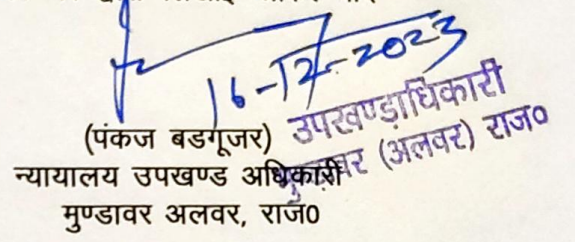 16-12-2023
(पंकज बडगूजर)
न्यायालय उपखण्ड अधिकारी
मुण्डावर अलवर, राज0
उपखण्ड़ाधिकारी
(अलवर) राज०